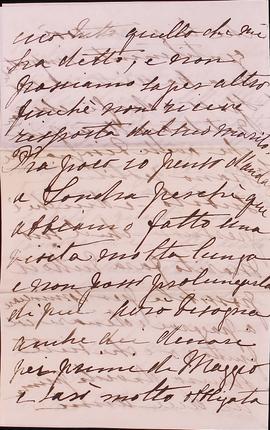 cico tutto quello che mi
ha detto, e non
possiamo saper altro
finchè non riceve
risposta dal suo marito
Fra poco io penso d'andare
a Londra perchè qui
abbiamo fatto una
visita molto lunga
e non posso prolungarla
di più avrò bisogno
anche di denari
pei primi di Maggio
e sarò molto obbligata